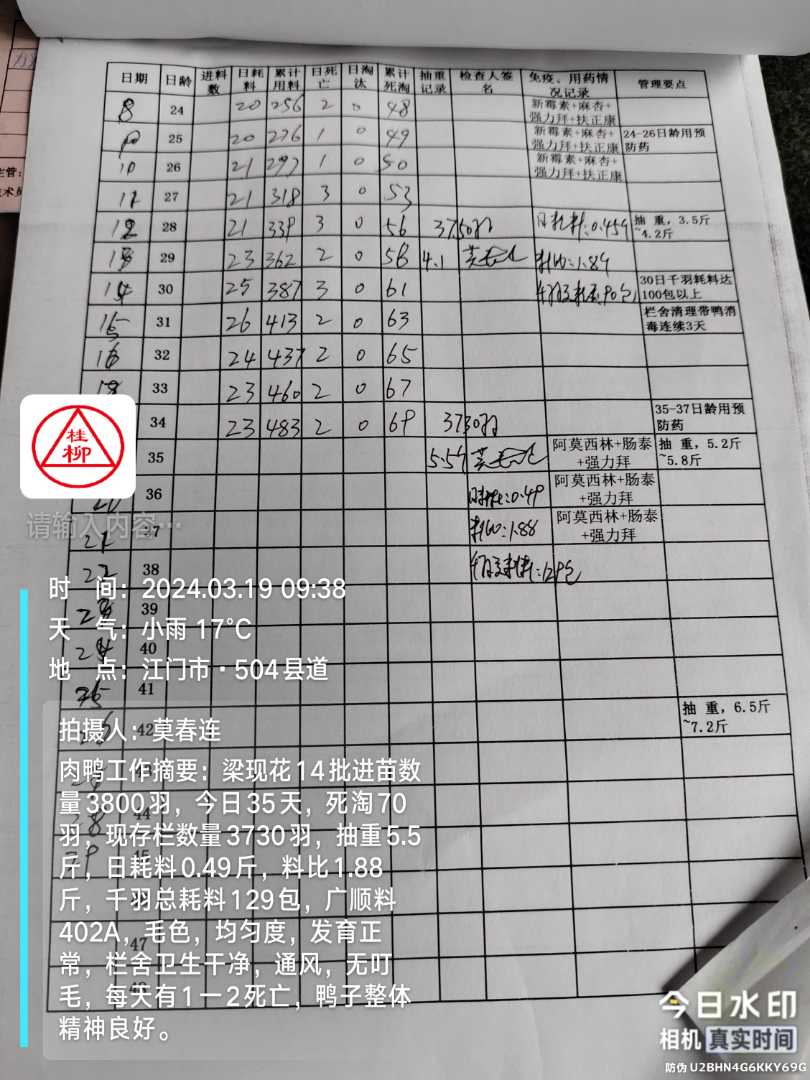 日期 日龄 进料数 日耗料 累计用料 日死亡 日淘汰 累计死淘 抽重记录 检查人签名 免疫、用药情况记录 管理要点
8 24 20 256 2 0 48 新霉素+麻杏+强力拜+扶正康
25 20 276 1 0 49 新霉素+麻杏+强力拜+扶正康 24-26日龄用预防药
10 26 21 297 1 0 50 新霉素+麻杏+强力拜+扶正康
11 27 21 318 3 0 53
12 28 21 339 3 0 56 3750羽 日耗料:0.45斤 抽重，3.5斤~4.2斤
13 29 23 362 2 0 58 4.1 料比:1.89
14 30 25 387 3 0 61 90包 30日千羽耗料达100包以上
15 31 26 413 2 0 63 栏舍清理带鸭消毒连续3天
16 32 24 437 2 0 65
18 33 23 460 2 0 67
34 23 483 2 0 69 3730羽 35-37日龄用预防药
35 5.5斤 阿莫西林+肠泰+强力拜 抽重，5.2斤~5.8斤
20 36 日耗料:0.49 阿莫西林+肠泰+强力拜
21 37 料比:1.88 阿莫西林+肠泰+强力拜
22 38 129包
23 39
24 40
25 41
26 42 抽重，6.5斤~7.2斤
44
47
桂柳
请输入内容…
时 间：2024.03.19 09:38
天 气：小雨 17℃
地 点：江门市·504县道
拍摄人：莫春连
肉鸭工作摘要：梁现花14批进苗数
量3800羽，今日35天，死淘70
羽，现存栏数量3730羽，抽重5.5
斤，日耗料0.49斤，料比1.88
斤，千羽总耗料129包，广顺料
402A，毛色，均匀度，发育正
常，栏舍卫生干净，通风，无叮
毛，每天有1一2死亡，鸭子整体
精神良好。
今日水印
相机 真实时间
防伪 U2BHN4G6KKY69G